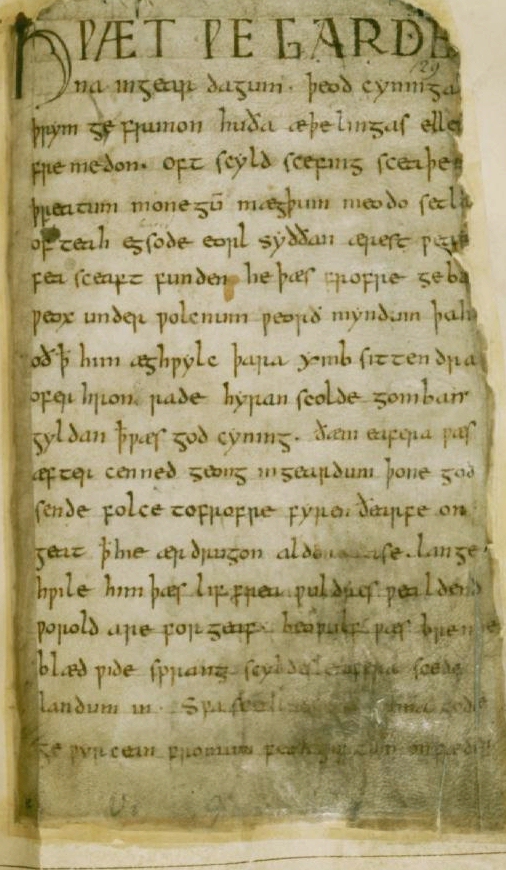 HǷÆT ǷE GARDE
na ingear dagum. þeod cyninga
þrym ge frunon huða æþelingas elle
fremedon. oft scyld scefing sceaþe
þreatum monegū mægþum meodo setla
of teah egsode eorl syððan ærest ƿea
fea sceaft funden he þæs frofre geba
ƿeox under ƿolcnum ƿeorð myndum þah
oð ꝥ him æghƿylc þara ymb sittendra
ofer hron rade hyran scolde gomban
gyldan ꝥ ƿæs god cyning. ðæm eafera ƿæs
æfter cenned geong in geardum þone god
sende folce tofrofre fyren ðearfe on
geat ꝥ hie ær drugon aldor ase. lange
hƿile him þæs lif frea ƿuldres ƿealdend
ƿorold are for geaf. beoƿulf ƿæs breme
blæd ƿide sprang scyldes eafera scede
landum in. Sƿa sceal ma gode
ge ƿyrcean fromum feoh giftum on fæder